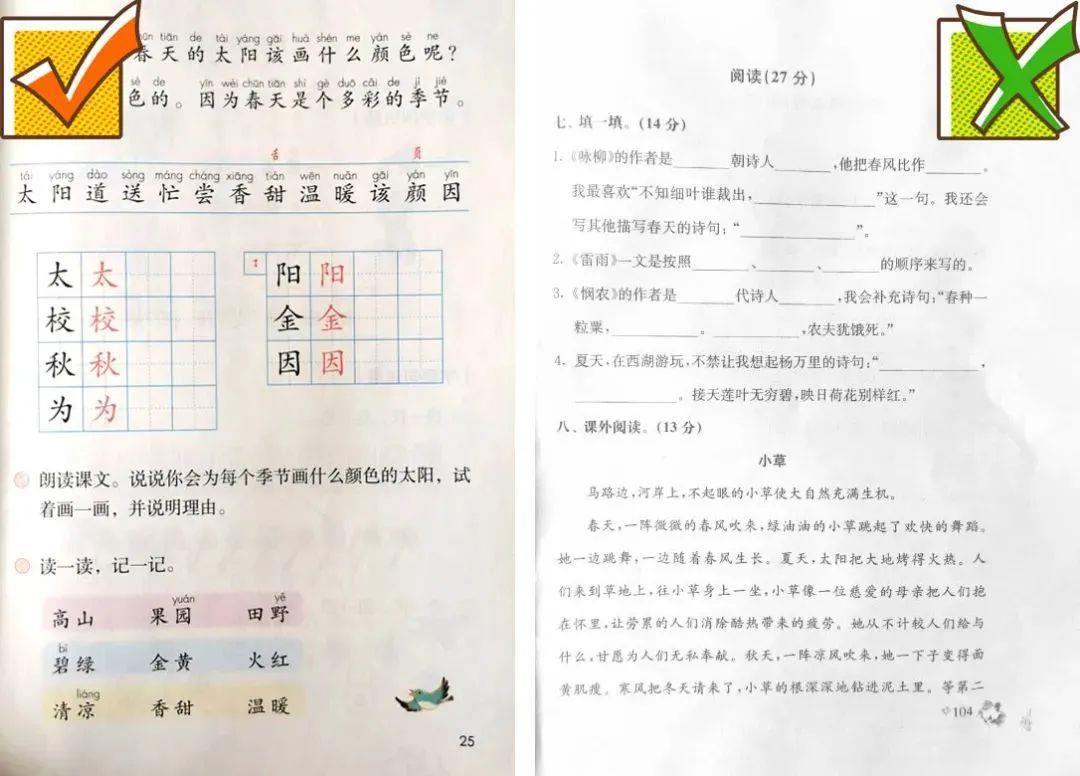 chūn tiān de tài yáng gāi huà shén me yán sè ne
春天的太阳该画什么颜色呢？
sè de yīn wèi chūn tiān shì gè duō cǎi de jì jié
色的。因为春天是个多彩的季节。
舌 页
tài yáng dào sòng máng cháng xiāng tián wēn nuǎn gāi yán yīn
太 阳 道 送 忙 尝 香 甜 温 暖 该 颜 因
太 太
校 校
秋 秋
为 为
阳 阳
金 金
因 因
朗读课文。说说你会为每个季节画什么颜色的太阳，试
着画一画，并说明理由。
读一读，记一记。
yuán yě
高山 果园 田野
bì
碧绿 金黄 火红
liáng
清凉 香甜 温暖
25
阅读（27分）
七、填一填。（14分）
1.《咏柳》的作者是______朝诗人______，他把春风比作______。
我最喜欢“不知细叶谁裁出，____________”这一句。我还会
写其他描写春天的诗句：“____________”。
2.《雷雨》一文是按照______、______、______的顺序来写的。
3.《悯农》的作者是______代诗人______，我会补充诗句：“春种一
粒粟，__________。__________，农夫犹饿死。”
4. 夏天，在西湖游玩，不禁让我想起杨万里的诗句：“__________，
__________。接天莲叶无穷碧，映日荷花别样红。”
八、课外阅读。（13分）
小草
马路边，河岸上，不起眼的小草使大自然充满生机。
春天，一阵微微的春风吹来，绿油油的小草跳起了欢快的舞蹈。
她一边跳舞，一边随着春风生长。夏天，太阳把大地烤得火热。人
们来到草地上，往小草身上一坐，小草像一位慈爱的母亲把人们抱
在怀里，让劳累的人们消除酷热带来的疲劳。她从不计较人们给与
什么，甘愿为人们无私奉献。秋天，一阵凉风吹来，她一下子变得面
黄肌瘦。寒风把冬天请来了，小草的根深深地钻进泥土里。等第二
104